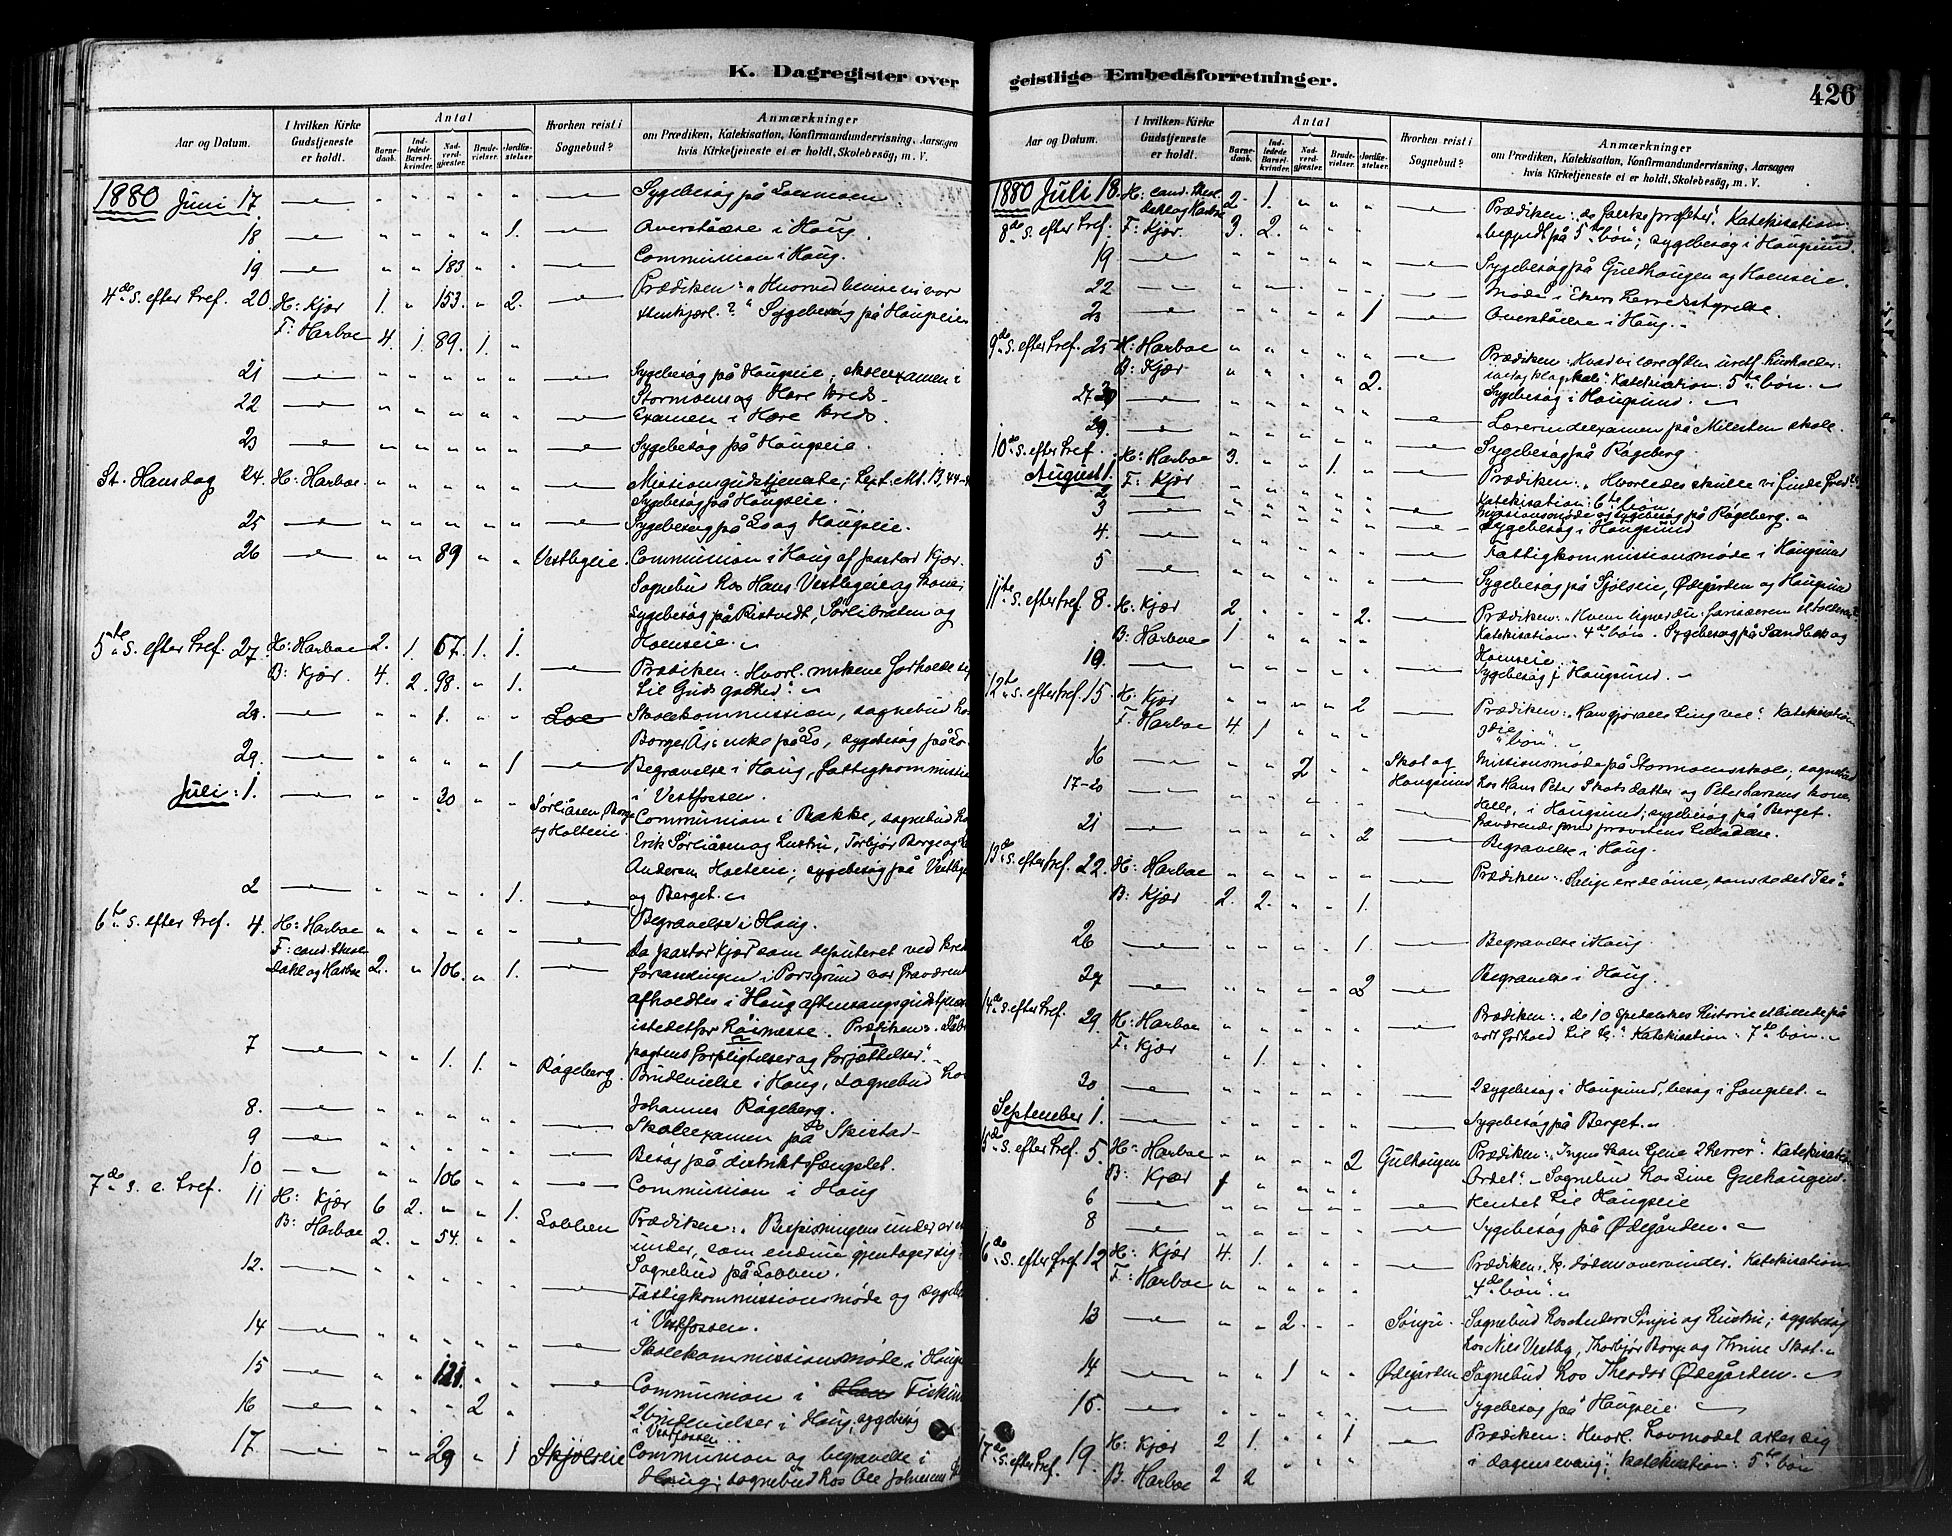 K. Dagregister over
Aar og Datum.
I hvilken Kirke Gudstjeneste er holdt.
Antal
Barnedaab.
Indledede Barselkvinder.
Nadverdgjester.
Brudevielser.
Jordkestelser.
Hvorhen reist i Sognebud?
Anmærkninger
om Prædiken, Katekisation, Konfirmandundervisning, Aarsagen
hvis Kirketjeneste ei er holdt, Skolebesøg, m. V.
1880 Juni 17 " " " " " Sygebesøg på
18. " " " " 1. i Haug.
19 " " 183 " " Communion i Haug.
4de s. efter Tref. 20 H: Kjær 1. " 153. " 2. Prædiken: "Hvorved bevise vi vor
F: Harboe 4. 1. 89. 1. " Sygebesøg på Haugseie
21 " " " " " Sygebesøg på Haugseie; skoleexamen i
Stormoens og Hære kreds.
22 " " " " " Examen i Hære kreds.
23 " " " " " Sygebesøg på Haugseie.
St. Hansdag 24. H: Harboe. " " " " " Missionsgudstjeneste; Text. Mt. 13,44-
Sygebesøg på Haugseie.
25 " " " " " Sygebesøg på Lo og Haugseie.
26 " " 89 " " Vestbyeie. Communion i Haug af pastor Kjær.
Sognebud hos Hans Vestbyeie og kone;
sygebesøg på Sørlibråten og
Hoenseie.
5te s. efter Tref. 27. H: Harboe 2. 1. 67. 1. 1.
B: Kjær. 4. 2. 98. " 1. Prædiken: Hvorl. forholde sig
til Guds godhed".
28. " " 1. " " Loe Skolekommission, sognebud hos
Borger på Lo, sygebesøg på Lo.
29. " " " " 1 Begravelse i Haug, fattigkommission
i Vestfossen.
Juli: 1. " " 20 " " Sørliåsen, Borge og Holteie Communion i Bakke, sognebud hos
Erik Sørliåsen og hustru, Torbjør Borge og
Andersen Holteie; sygebesøg på Vestby
og Berget.
2 " " " " 1. Begravelse i Haug.
6te s. efter Tref. 4. H: Harboe " " " " "
F: cand. theol. Dahl og Harboe 2. " 106. " 1. Da pastor Kjær som deputeret ved
i Porsgrund var fraværende
afholdtes i Haug aftensangsgudstjeneste
istedetfor Råimesse. Prædiken: Dåbs
pagtens forpligtelser og forjættelser".
7 " " 1. 1. " Røgeberg. Brudevielse i Haug, sognebud hos
Johannes Røgeberg.
8. " " " " " Skoleexamen på Skistad
9 " " " " " Besøg på distriktsfængslet.
10 " " 106 " " Communion i Haug
7de s. e. Tref. 11 H: Kjær 6 2. " " 1. Lobben Prædiken: "Bespisningens under er et
B: Harboe 2. " 54. " " under, som endnu gjentager sig"
Sognebud på Lobben.
12. " " " " " Fattigkommissionsmøde og sygebesøg
i Vestfossen.
14 " " " " " Skolekommissionsmøde i Haugs
15 " " 121. " " Communion i Haug Fiskum
16 " " " 2 " 2 brudevielser i Haug, sygebesøg
i Vestfossen
17. " " 29 " 1 Skjølseie Communion og begravelse i
Haug; sognebud hos Ole Johnsens
geistlige Embedsforretninger.
426
Aar og Datum.
I hvilken Kirke Gudstjeneste er holdt.
Antal
Barnedaab.
Indledede Barselkvinder.
Nadverdgjester.
Brudevielser.
Jordkestelser.
Hvorhen reist i Sognebud?
Anmærkninger
om Prædiken, Katekisation, Konfirmandundervisning, Aarsagen
hvis Kirketjeneste ei er holdt, Skolebesøg, m. V.
1880 Juli 18. H: cand. theol. Dahl og Harboe 2. 1. " " " Prædiken: "de falske profeter". Katekisation
8de s. efter Tref. F: Kjær. 3. 2. " " " begyndt på 5te bøn"; sygebesøg i Haugsund.
19 " " " " " Sygebesøg på Guldhaugen og Hoenseie.
22 " " " " " Møde i Ekers Herredsstyrelse.
23 " " " " 1 i Haug.
9de s. efter Tref. 25 H: Harboe " " " " " Prædiken: Hvad vi lære af den uretf. husholder
B: Kjær " " " " 2. Katekisation: 5te bøn.
27-28 Sygebesøg i Haugsund.
29. Lærerindeexamen på Milesten skole
10de s. efter Tref. Sygebesøg på Røgeberg.
August 1. H: Harboe 3. " " 1. " Prædiken: "Hvorledes skulle vi finde fred?"
F: Kjær Katekisation: 6te bøn.
2 Missionsmøde og sygebesøg på Røgeberg.
3 Sygebesøg i Haugsund
4. Fattigkommissionsmøde i Haugsund
5 Sygebesøg på Sjølseie, Ødegården og Haugsund
11te s. efter Tref. 8. H: Kjær 2 " " " 2. Prædiken: "Hvem ligner du: farisæeren el. tolderen?"
B: Harboe 1. " " " " Katekisation: 4de bøn. Sygebesøg på Sandbæk og
Hoenseie.
10. Sygebesøg i Haugsund.
12te s. efter Tref. 15 H: Kjær " " " " 2 Prædiken: "Han gjør alle ting vel". Katekisation
F: Harboe 4. 1 " " " 3die bøn".
16 " " 2 " " Skol og Haugsund Missionsmøde på Stormoens skole; sognebud
hos Hans Peter Skols datter og Peter Larsens kone
17-20 i Haugsund; sygebesøg på Berget.
Fraværende med provstens tilladelse.
21 " " " " 2 Begravelse i Haug.
13de s. efter Tref. 22. H: Harboe " " " " " Prædiken: "Salige ere de øine, som se det I se"
B: Kjær 2. 2. " " 1.
26 " " " " 1. Begravelse i Haug
27 " " " " 2 Begravelse i Haug.
14de s. efter Tref. 29. H: Harboe " " " " " Prædiken: "de 10 spedalskes historie et billede på
F: Kjær " 1. " " " vort forhold til Kr." Katekisation: 7de bøn.
30 2 sygebesøg i Haugsund, besøg i fængslet.
September 1. Sygebesøg på Berget.
15de s. efter Tref. 5. H: Harboe " " " " 2 Gulhaugen Prædiken: "Ingen kan tjene 2 herrer". Katekisation
B: Kjær 1 " " " " Ordet". Sognebud hos Line Gulhaugen.
6 Hentet til Haugseie
8 Sygebesøg på Ødegården.
16de s. efter Tref. 12 H: Kjær 4. 1. " " " Prædiken: Kr. dødens overvinder". Katekisation
F: Harboe " " " " " 4de bøn".
13 " " 2. " " Sønju Sognebud hos Anders Sønju og hustru; sygebesøg
hos Nils Vestby, Thorbjør Borge og Thrine Skol.
14 " " 1 " " Ødegården Sognebud hos Theodor Ødegården.
15. Sygebesøg på Haugseie.
17de s. efter Tref. 19. H: Kjær 2 1. " " 1 Prædiken: Hvorl. hovmodet arter sig
B. Harboe 2 2 i dagens evang; katekisation: 5te bøn